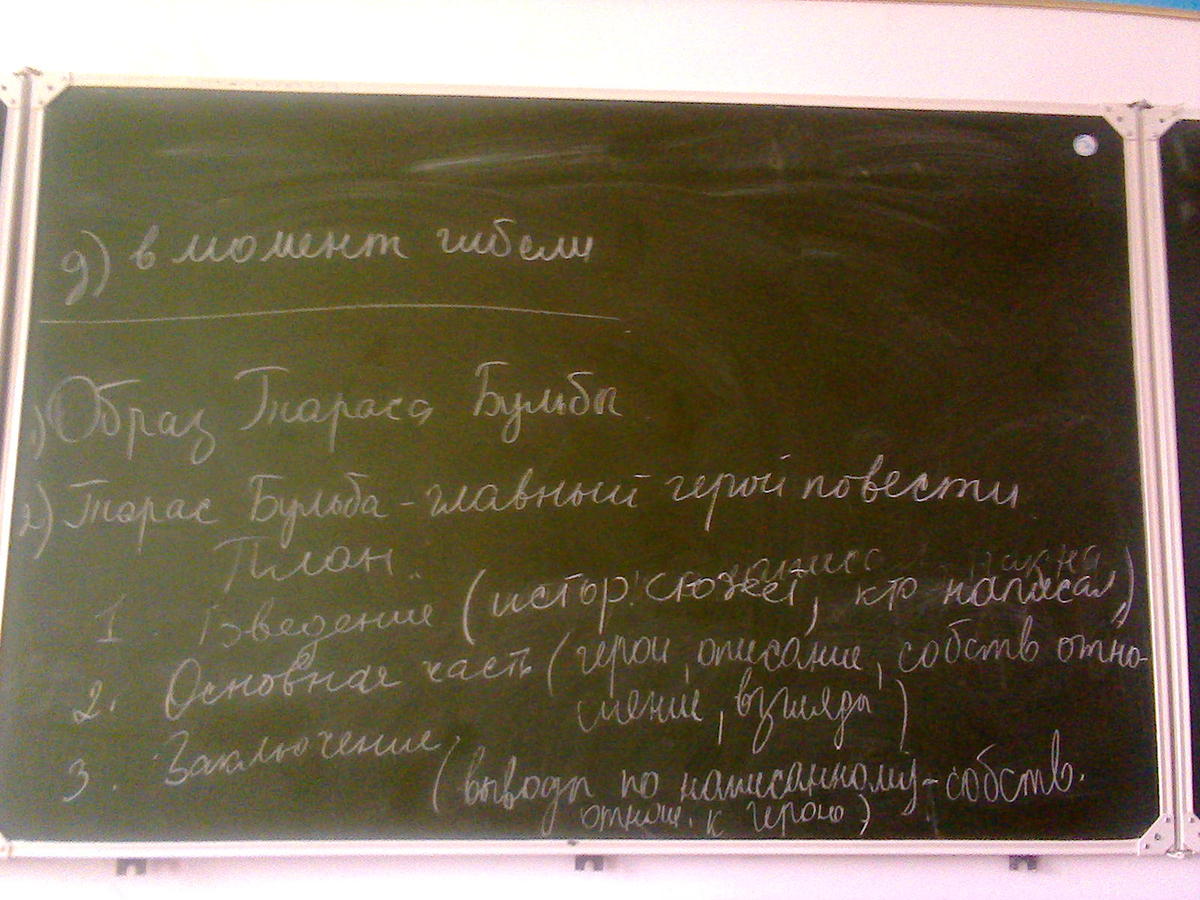 д) в момент гибели
1) Образ Тараса Бульбы
2) Тарас Бульба - главный герой повести
План.
1 Введение (истор. сюжет, кто написал)
2. Основная часть (герои, описание, собств отно-
шение, взгляды)
3. Заключение.
(выводы по написанному - собств.
отнош. к герою)